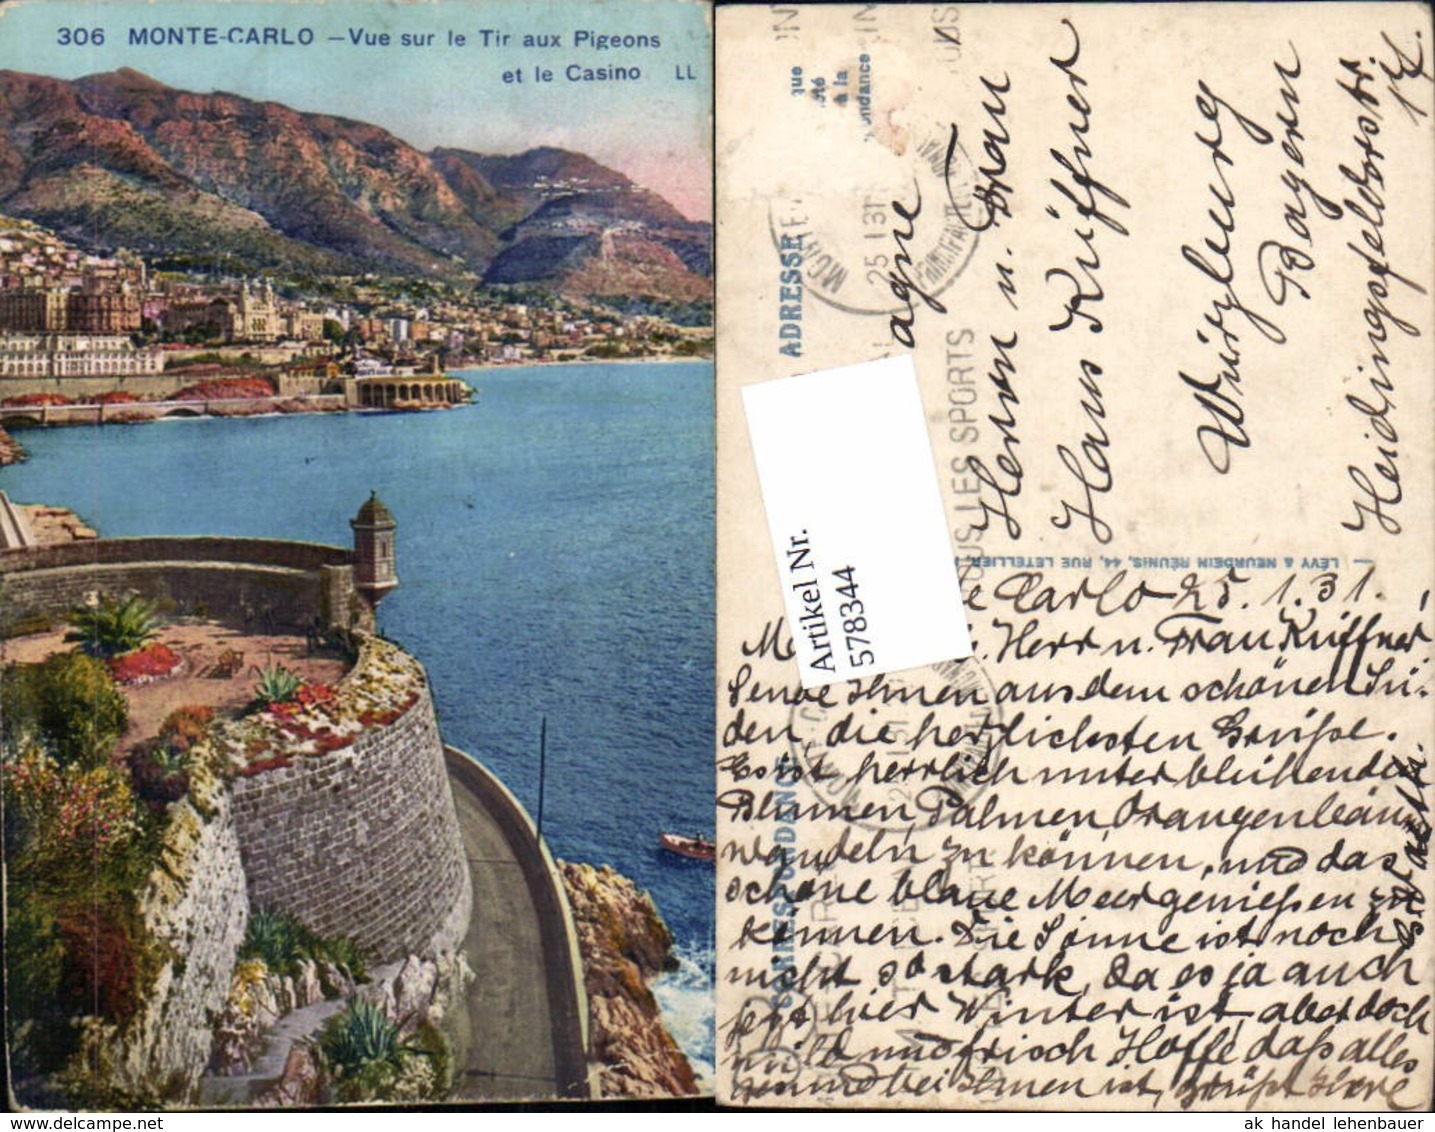 306 MONTE-CARLO – Vue sur le Tir aux Pigeons
et le Casino LL
ADRESSE
CORRESPONDANCE
LÉVY & NEURDEIN RÉUNIS, 44, RUE LETELLIER
TOUS LES SPORTS
25 1 31
Herrn u. Frau
Hans Küffner
Würzburg
Bayern
Heidingsfelderstr.
17.
Carlo 25.1.31.
Herr u. Frau Küffner!
Sende Ihnen aus dem schönen Sü-
den die herzlichsten Grüße.
Es ist herrlich unter blühenden
Blumen, Palmen, Orangenbäumen
wandeln zu können, und das
schöne blaue Meer genießen zu
können. Die Sonne ist noch
nicht so stark, da es ja auch
jetzt hier Winter ist, aber doch
mild und frisch. Hoffe, daß alles
gesund bei Ihnen ist, grüßt Ihre
Artikel Nr.
578344
ak handel lehenbauer